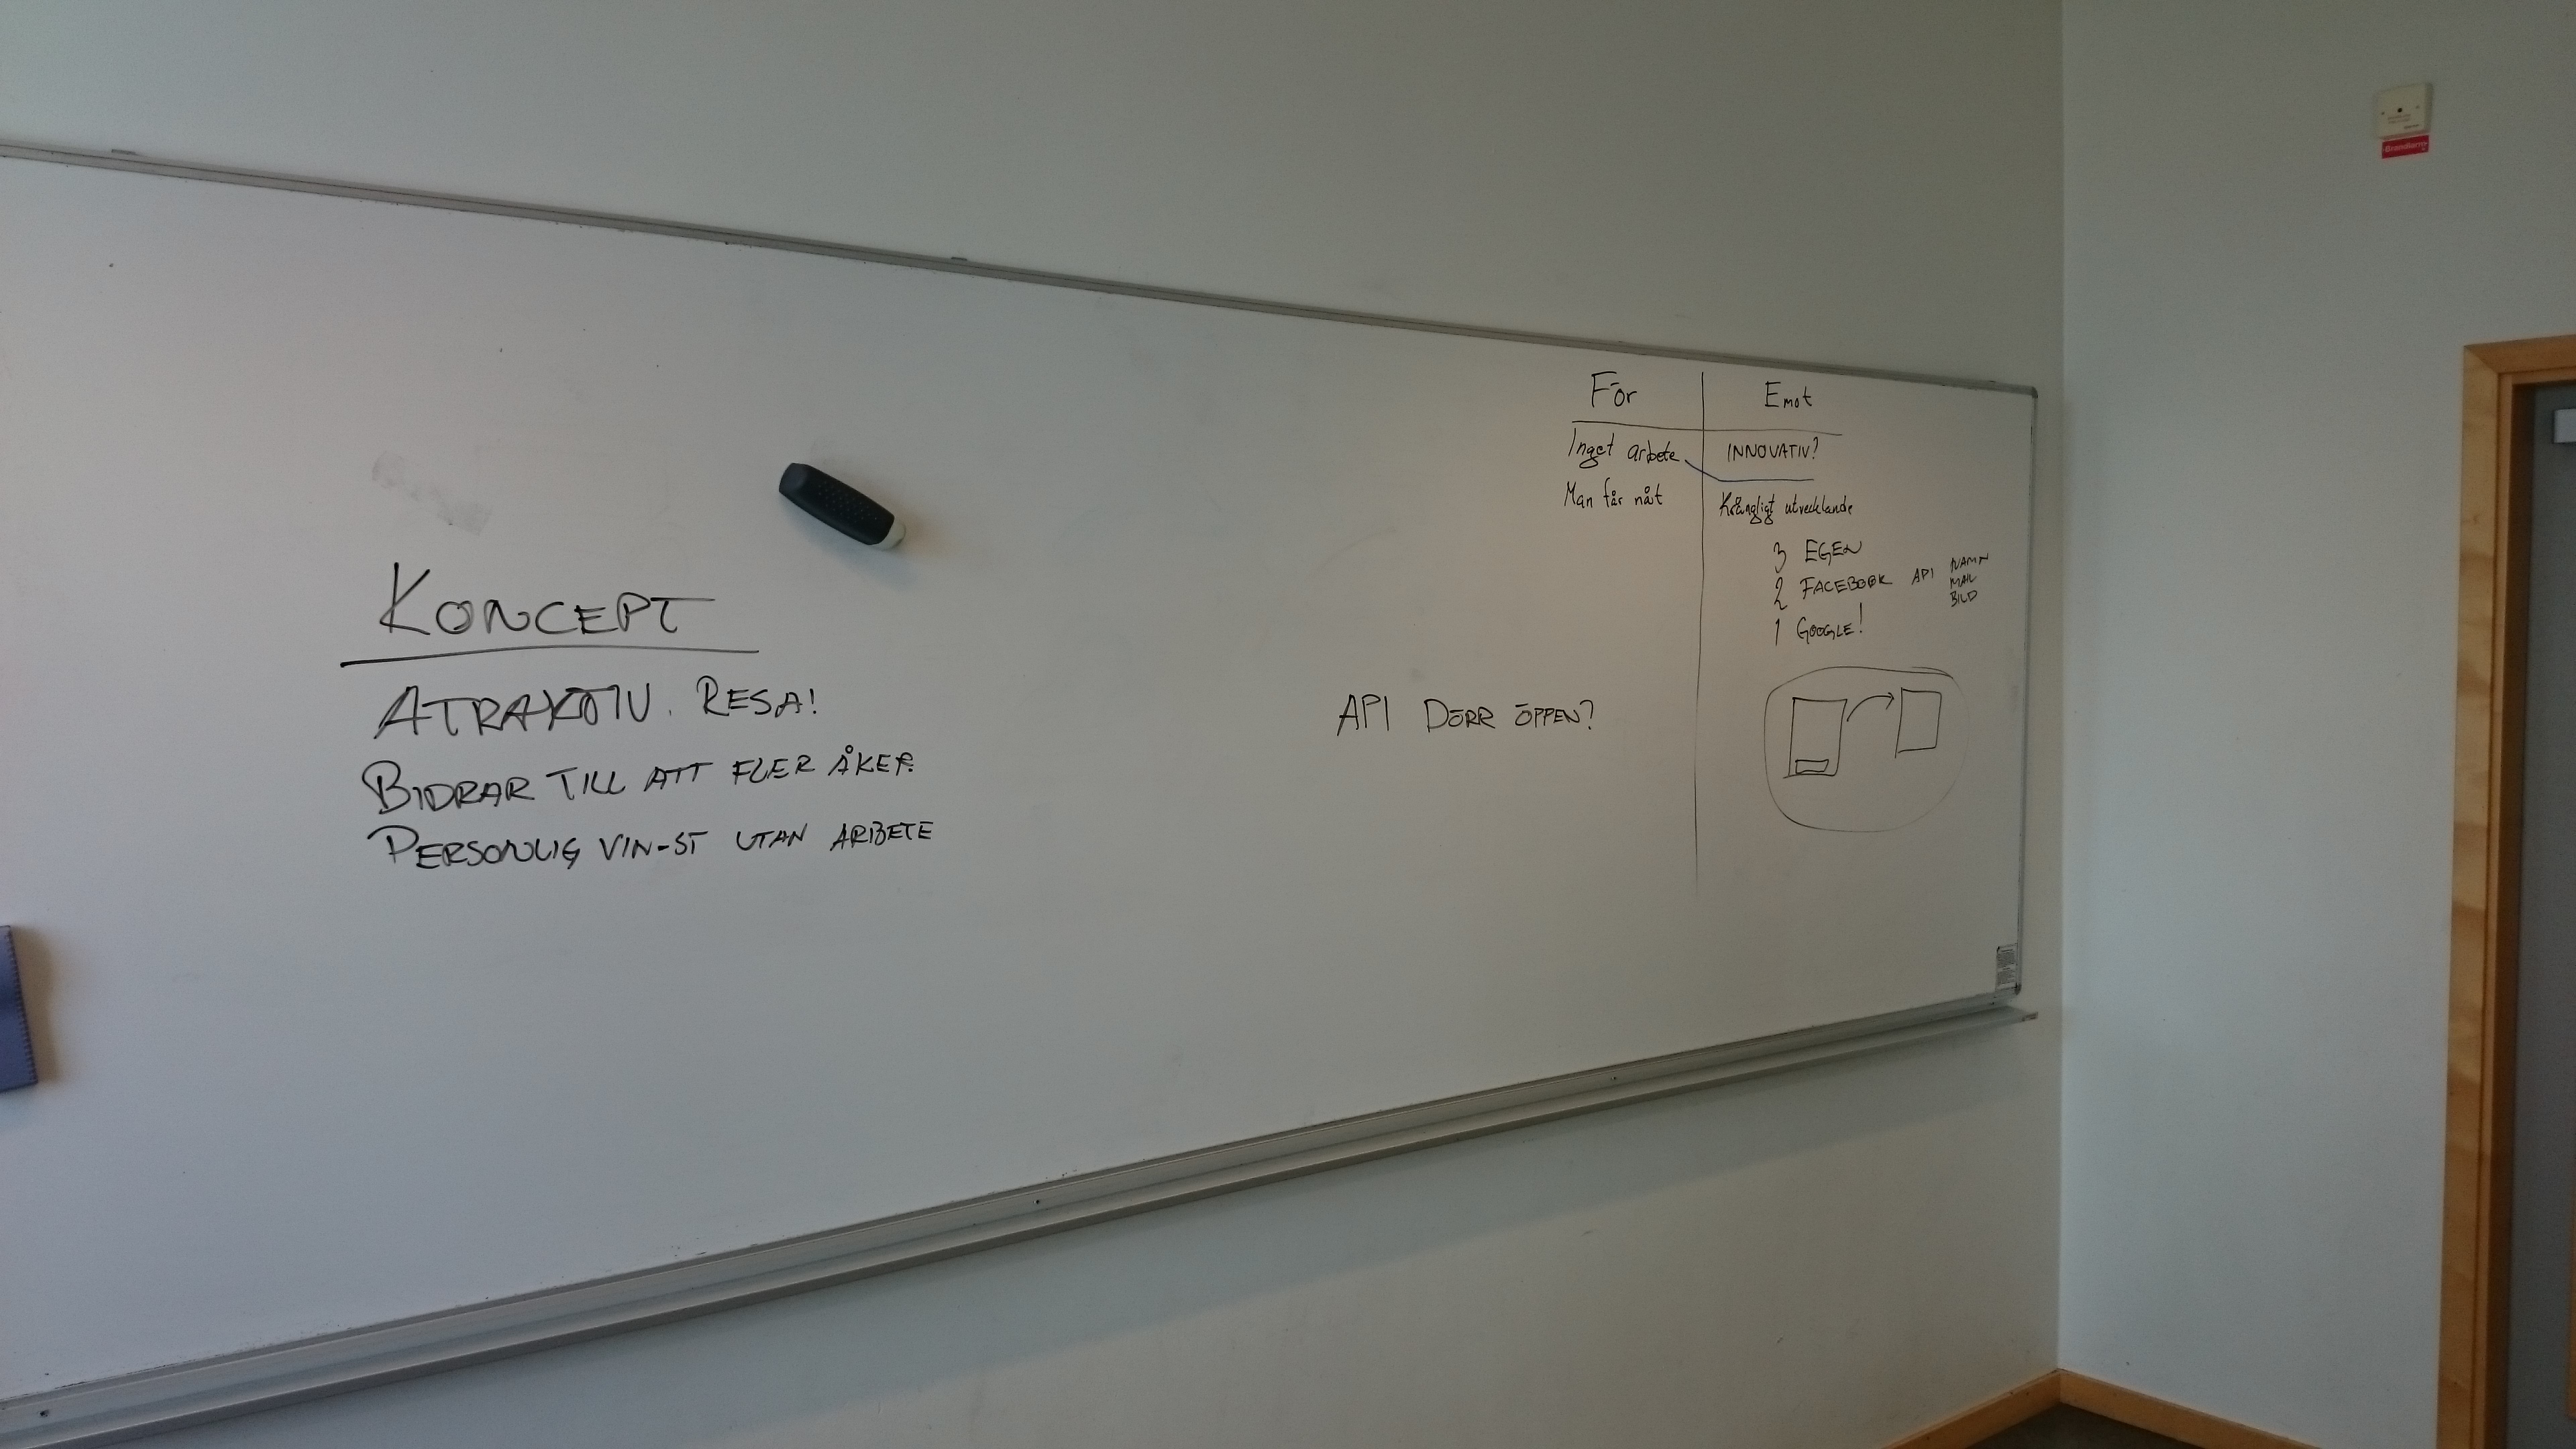 KONCEPT
ATRAKTIV. RESA!
BIDRAR TILL ATT FLER ÅKER.
PERSONLIG VIN-ST UTAN ARBETE
API DÖRR ÖPPEN?
För
Inget arbete
Man får nåt
Emot
INNOVATIV?
Krångligt utvecklande
3 EGEN
2 FACEBOOK API NAMN
MAIL
BILD
1 GOOGLE!
Brandlarm